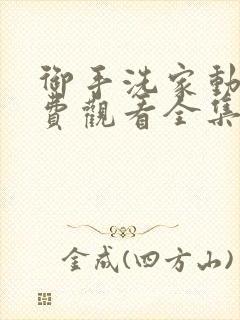 御手洗家動
費觀看全集
金成(四方山)